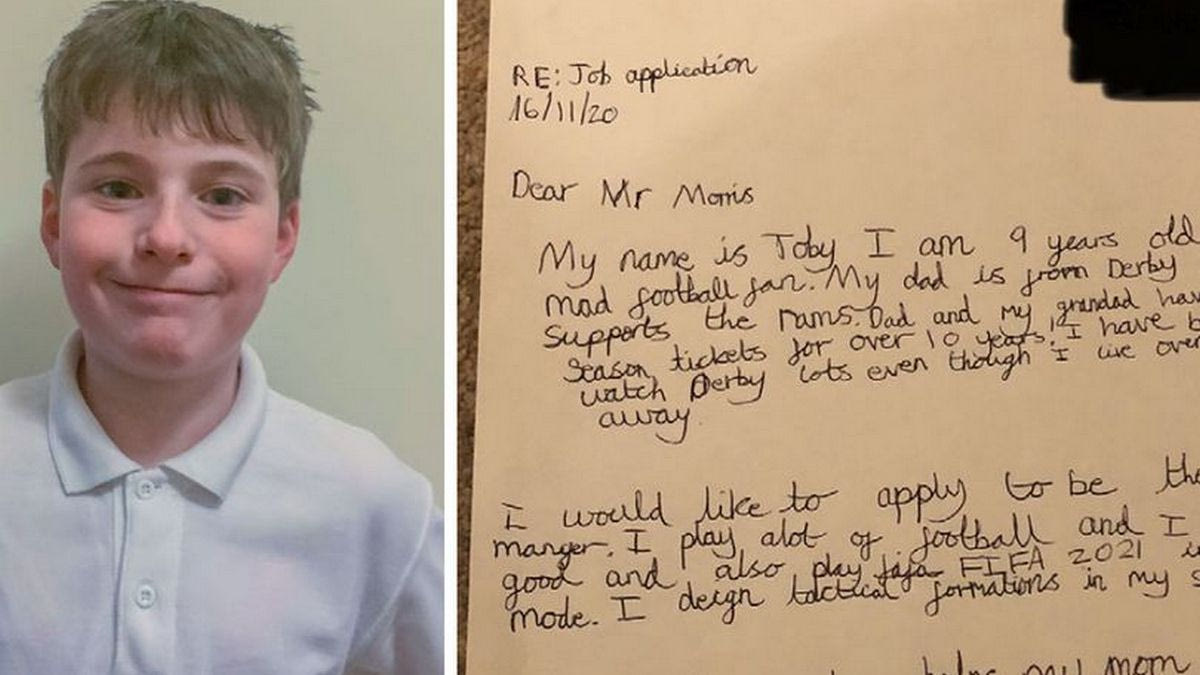 RE: Job application
16/11/20
Dear Mr Morris
My name is Toby I am 9 years old
mad football fan. My dad is from Derby
supports the rams. Dad and my grandad hav
Season tickets for over 10 years! I have b
watch Derby lots even though I live over
away.
I would like to apply to be the
manger. I play alot of football and I
good and also play FIFA 2021 i
mode. I deign tactical formations in my s
my mom